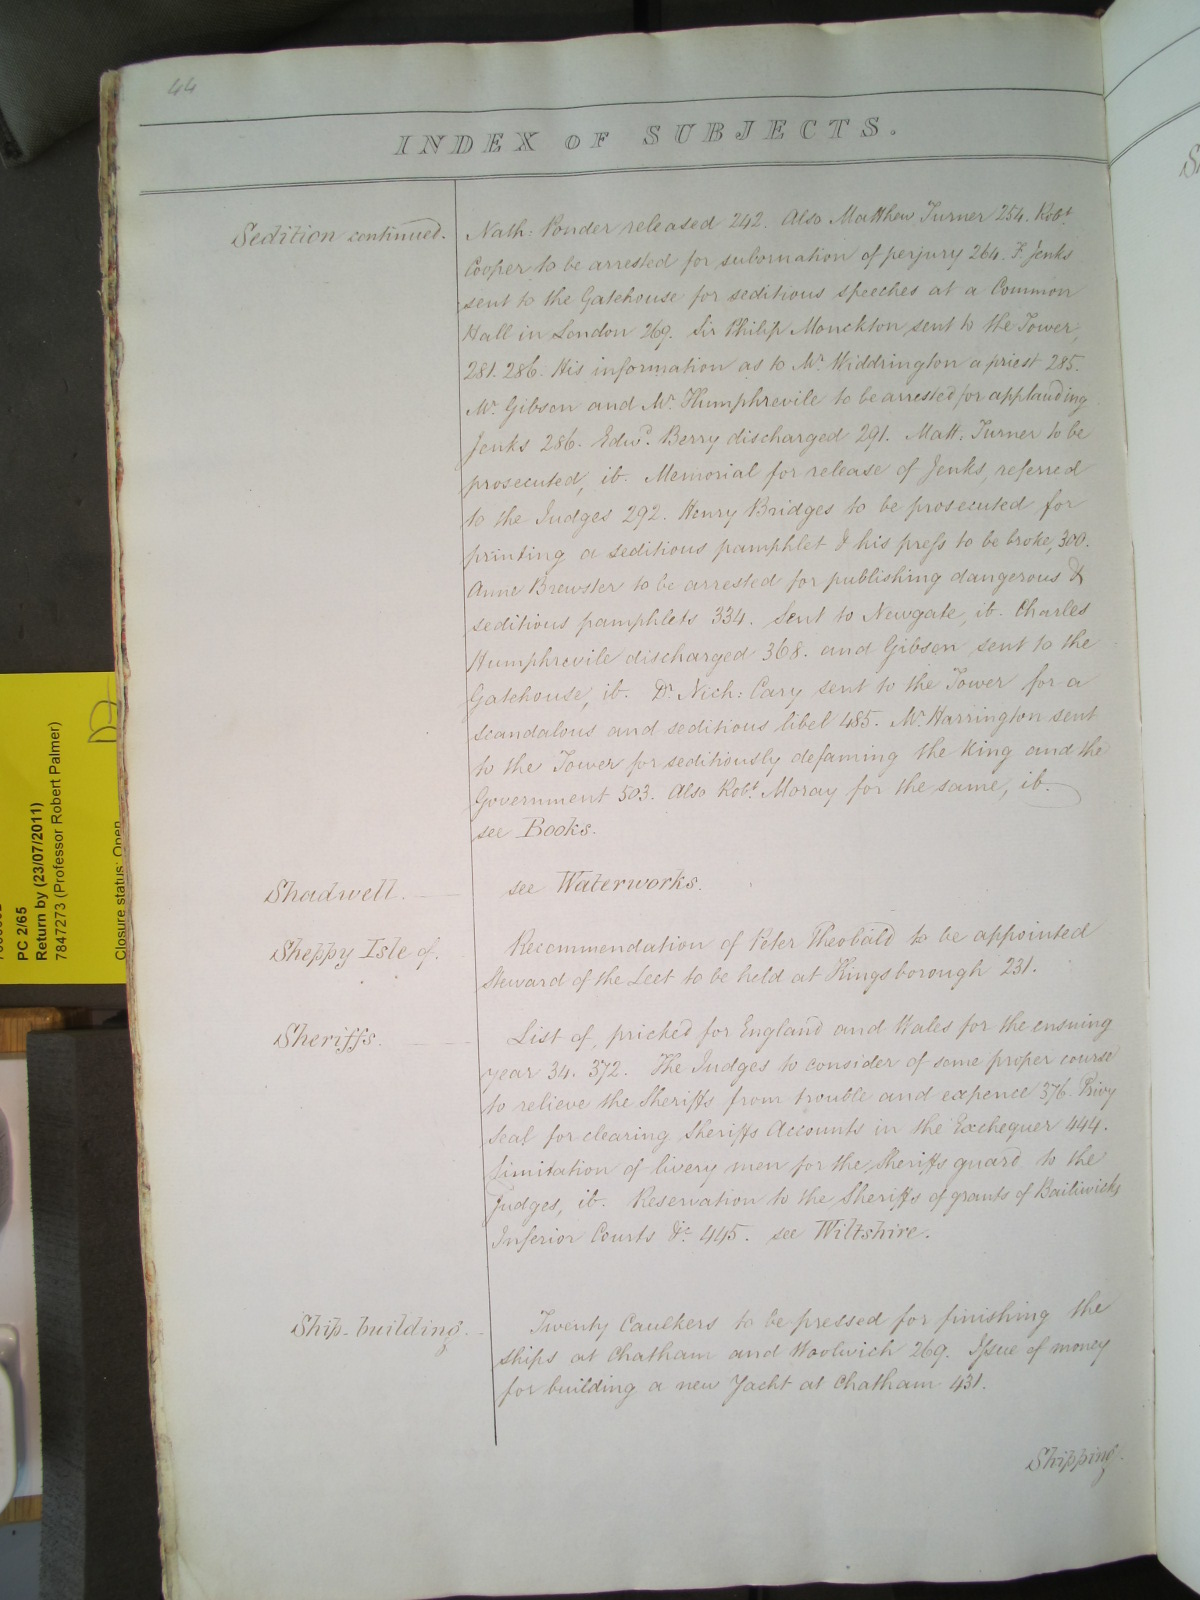 44
INDEX OF SUBJECTS.
Sedition continued.
Nath: Ponder released 242. Also Matthew Turner 254. Robt
Cooper to be arrested for subornation of perjury 264. F. Jenks
sent to the Gatehouse for seditious speeches at a Common
Hall in London 269. Sir Philip Monckton sent to the Tower,
281. 286. His information as to Mr. Widdrington a priest 285.
Mr. Gibson and Mr. Humphrevile to be arrested for applauding
Jenks 286. Edwd. Berry discharged 291. Matt. Turner to be
prosecuted, ib. Memorial for release of Jenks, referred
to the Judges 292. Henry Bridges to be prosecuted for
printing a seditious pamphlet & his press to be broke, 300.
Anne Brewster to be arrested for publishing dangerous &
seditious pamphlets 334. Sent to Newgate, ib. Charles
Humphrevile discharged 368. and Gibson sent to the
Gatehouse, ib. Dr. Nich: Cary sent to the Tower for a
scandalous and seditious libel 485. Mr. Harrington sent
to the Tower for seditiously defaming the King and the
Government 503. Also Robt. Moray for the same, ib.
see Books.
Shadwell.
see Waterworks.
Sheppy Isle of.
Recommendation of Peter Theobald to be appointed
Steward of the Leet to be held at Kingsborough 231.
Sheriffs.
List of, pricked for England and Wales for the ensuing
year 34. 372. The Judges to consider of some proper course
to relieve the Sheriffs from trouble and expence 376. Privy
Seal for clearing Sheriffs Accounts in the Exchequer 444.
Limitation of livery men for the Sheriffs guard to the
Judges, ib. Reservation to the Sheriffs of grants of Bailiwicks
Inferior Courts &c. 445. see Wiltshire.
Ship-building.
Twenty Caulkers to be pressed for finishing the
ships at Chatham and Woolwich 269. Issue of money
for building a new Yacht at Chatham 431.
Shipping.
PC 2/65
Return by (23/07/2011)
7847273 (Professor Robert Palmer)
Closure status: Open